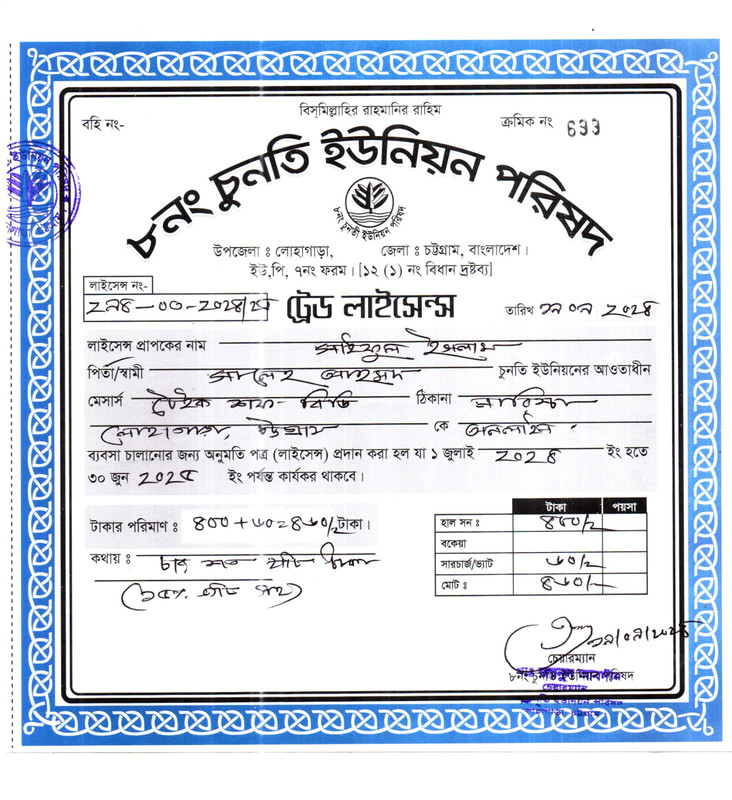 বিস্‌মিল্লাহির রাহমানির রাহিম
বহি নং-
ক্রমিক নং 699
৮নং চুনতি ইউনিয়ন পরিষদ
৮নং চুনতী ইউনিয়ন পরিষদ
উপজেলা ঃ লোহাগাড়া, জেলা ঃ চট্টগ্রাম, বাংলাদেশ।
ইউ,পি, ৭নং ফরম। [১২ (১) নং বিধান দ্রষ্টব্য]
লাইসেন্স নং-
ট্রেড লাইসেন্স
তারিখ ২০২৪
লাইসেন্স প্রাপকের নাম সাইফুল ইসলাম
পিতা/স্বামী সালেহ আহমদ চুনতি ইউনিয়নের আওতাধীন
মেসার্স বিডি ঠিকানা
লোহাগাড়া, চট্টগ্রাম কে অনলাইন
ব্যবসা চালানোর জন্য অনুমতি পত্র (লাইসেন্স) প্রদান করা হল যা ১ জুলাই ২০২৪ ইং হতে
৩০ জুন ২০২৫ ইং পর্যন্ত কার্যকর থাকবে।
টাকার পরিমাণ ঃ ৪০০+৬০=৪৬০/ টাকা।
কথায় ঃ চার শত ষাট টাকা
টাকা পয়সা
হাল সন ঃ ৪০০/
বকেয়া
সারচার্জ/ভ্যাট ৬০/
মোট ঃ ৪৬০/
চেয়ারম্যান
৮নং চুনতি ইউনিয়ন পরিষদ
চেয়ারম্যান